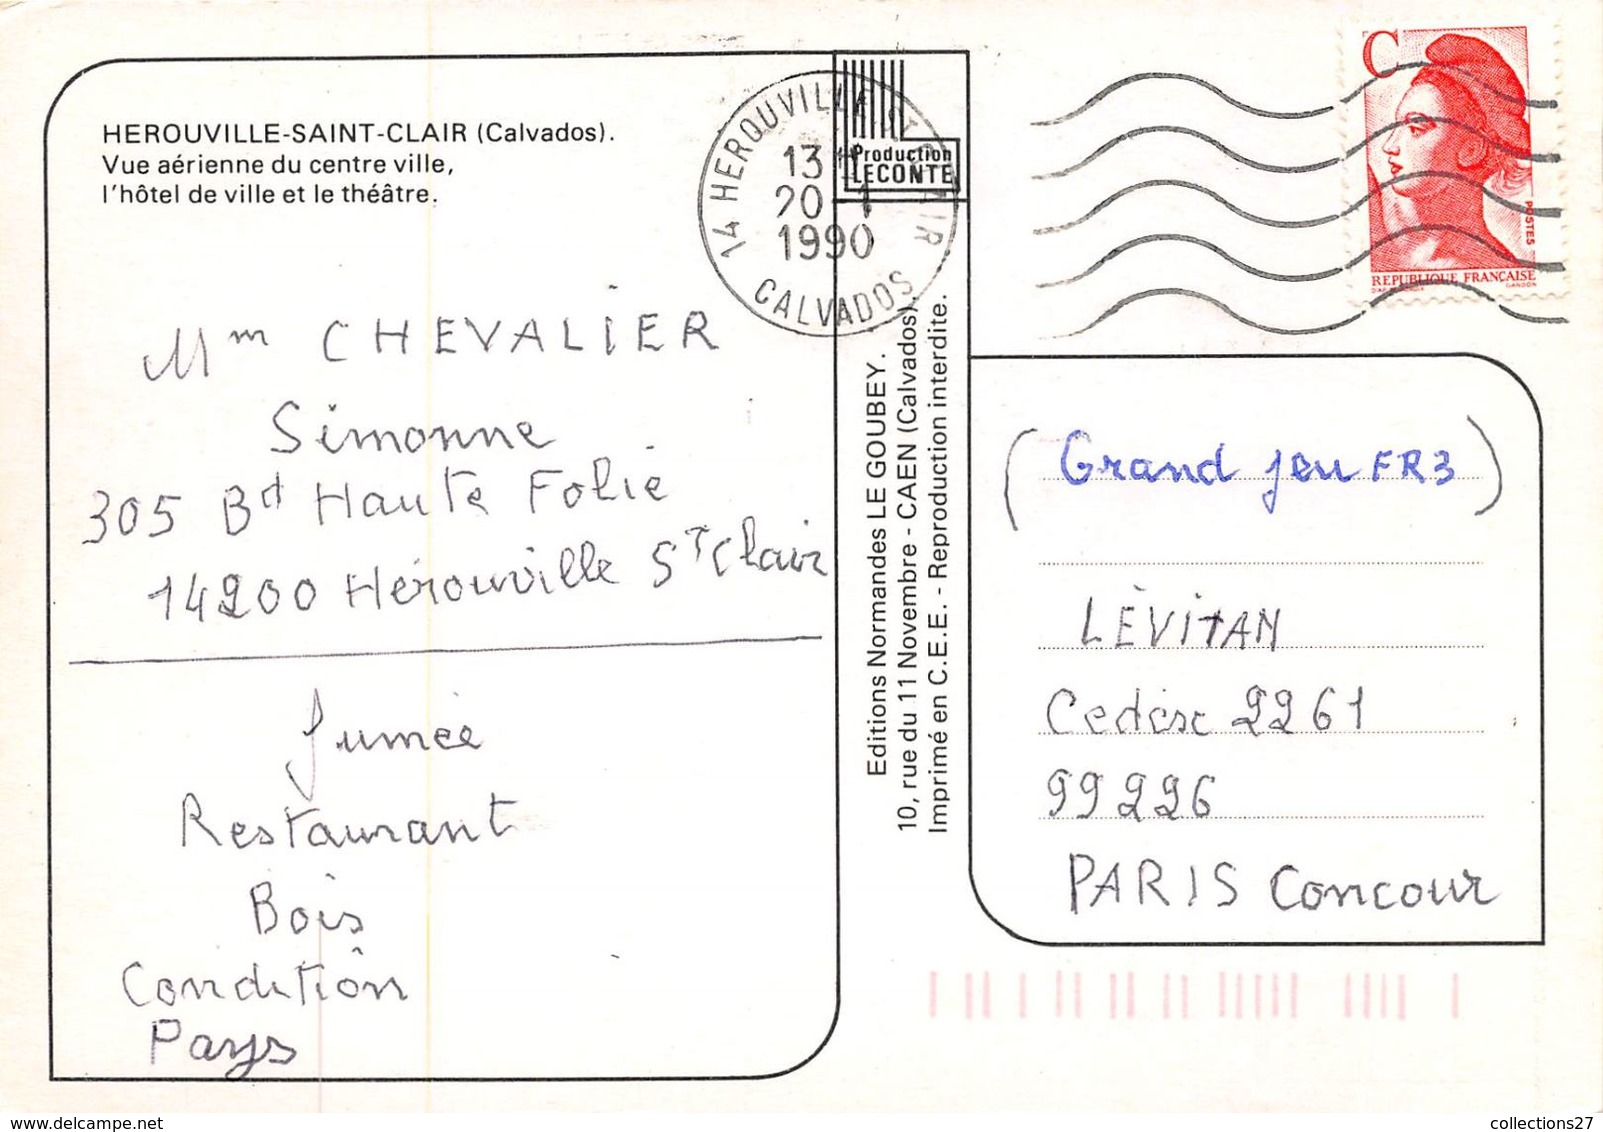 HEROUVILLE-SAINT-CLAIR (Calvados).
Vue aérienne du centre ville,
l'hôtel de ville et le théâtre.
Mm CHEVALIER
Simonne
305 Bd Haute Folie
14200 Hérouville ST Clair
fumée
Restaurant
Bois
Condition
Pays
14 HEROUVILLE ST CLAIR
13 H
20-1
1990
CALVADOS
Production
LECONTE
Editions Normandes LE GOUBEY.
10, rue du 11 Novembre - CAEN (Calvados).
Imprimé en C.E.E. - Reproduction interdite.
C
POSTES
REPUBLIQUE FRANÇAISE
GANDON
(Grand jeu FR3)
LÉVITAN
Cedesc 2261
99226
PARIS Concour
collections27